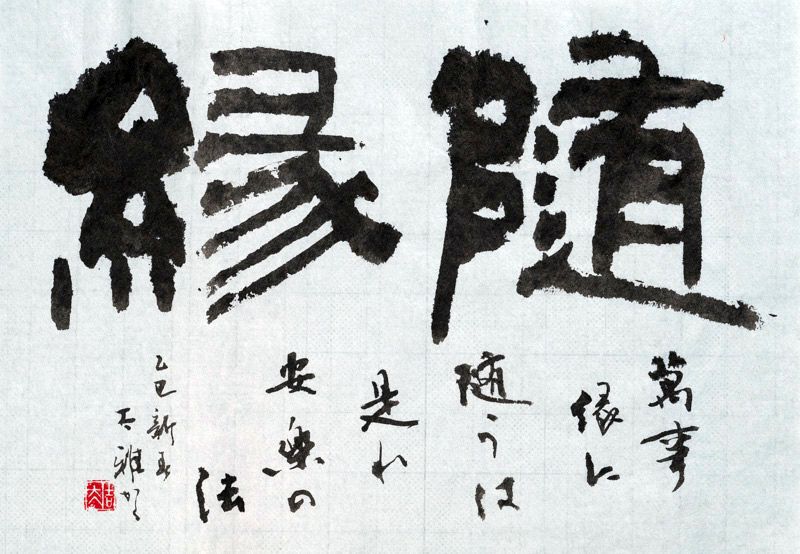 随縁
萬事
縁に
随うは
是れ
安樂の
法
乙巳新春
石雅